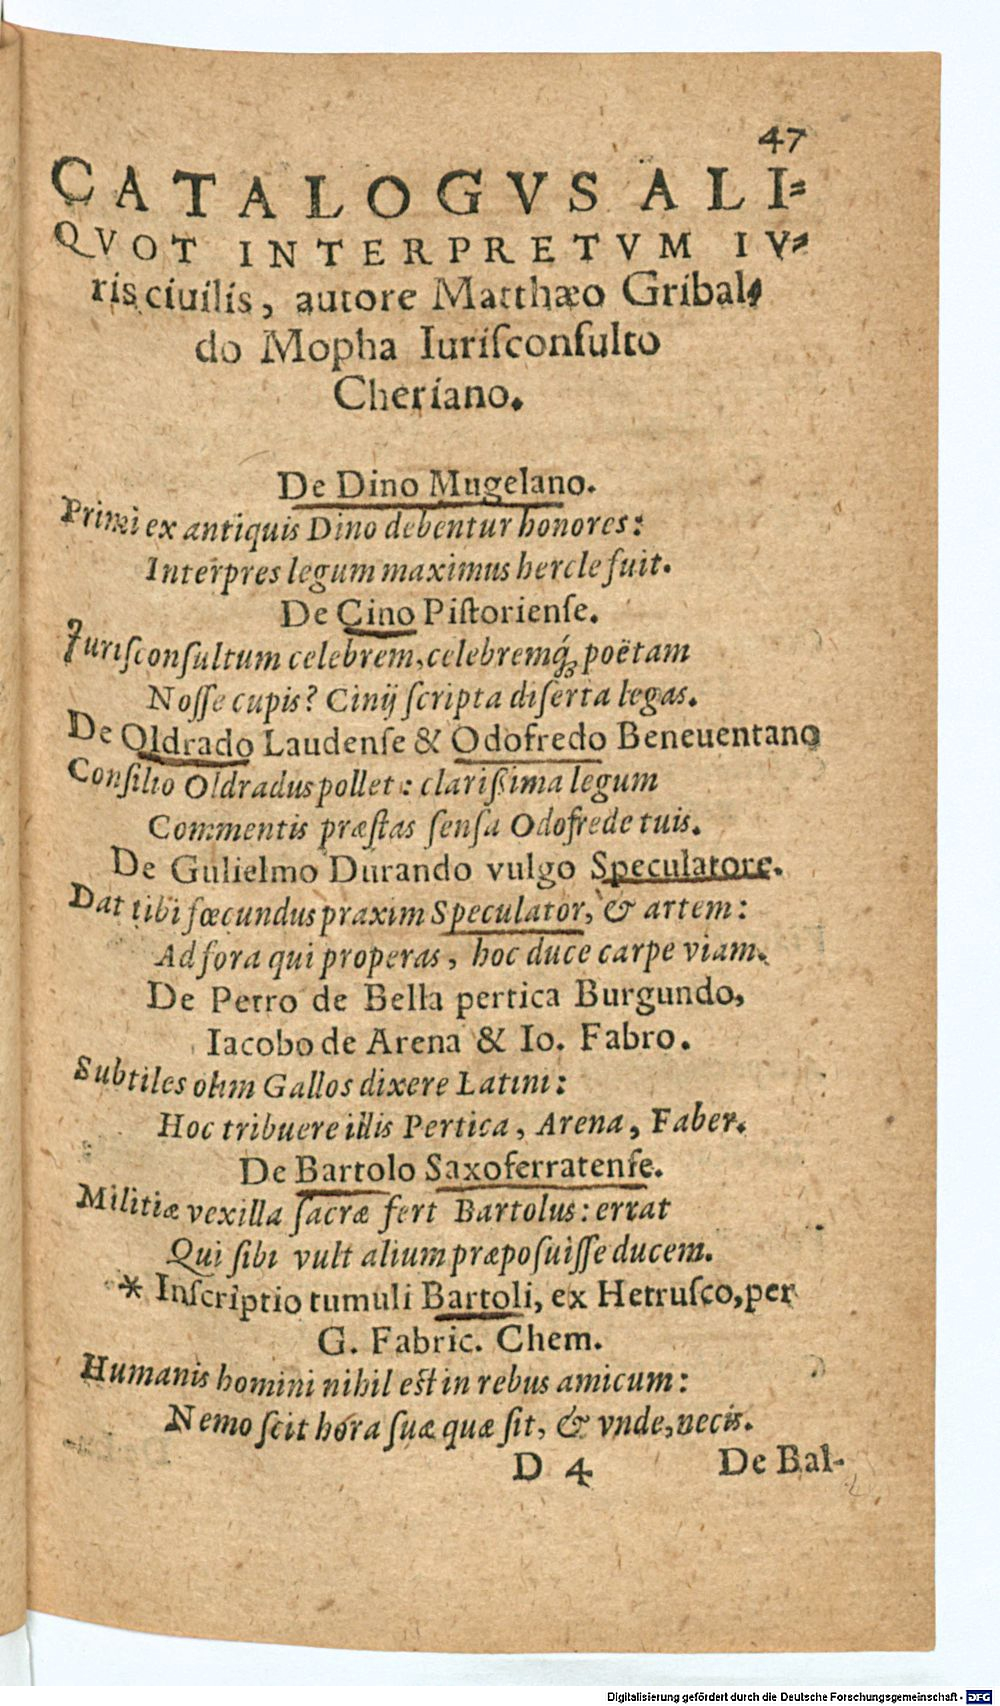 47
CATALOGVS ALI-
QVOT INTERPRETVM IV-
ris ciuilis, autore Matthæo Gribal-
do Mopha Iurisconsulto
Cheriano.
De Dino Mugelano.
Primi ex antiquis Dino debentur honores:
Interpres legum maximus hercle fuit.
De Cino Pistoriense.
Iurisconsultum celebrem, celebremq́; poëtam
Nosse cupis? Cinij scripta diserta legas.
De Oldrado Laudense & Odofredo Beneuentano
Consilio Oldradus pollet: clarißima legum
Commentis præstas sensa Odofrede tuis.
De Gulielmo Durando vulgo Speculatore.
Dat tibi fœcundus praxim Speculator, & artem:
Ad fora qui properas, hoc duce carpe viam.
De Petro de Bella pertica Burgundo,
Iacobo de Arena & Io. Fabro.
Subtiles olim Gallos dixere Latini:
Hoc tribuere illis Pertica, Arena, Faber.
De Bartolo Saxoferratense.
Militiæ vexilla sacræ fert Bartolus: errat
Qui sibi vult alium præposuisse ducem.
* Inscriptio tumuli Bartoli, ex Hetrusco, per
G. Fabric. Chem.
Humanis homini nihil est in rebus amicum:
Nemo scit hora suæ quæ sit, & vnde, necis.
D 4 De Bal-
Digitalisierung gefördert durch die Deutsche Forschungsgemeinschaft - DFG